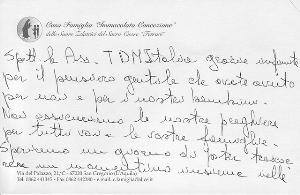 Casa Famiglia "Immacolata Concezione"
delle Suore Zelatrici del Sacro Cuore "Ferrari"
Spett.le Ass. TDM Italia grazie infinite
per il pensiero gentile che avete avuto
per noi e per i nostri bambini.
Non assicuriamo le nostre preghiere
per tutti voi e le vostre famiglie.
Speriamo un giorno di poter trascor
rere un momentino insieme nelle
Via del Palazzo, 21/C - 67020 San Gregorio (L'Aquila)